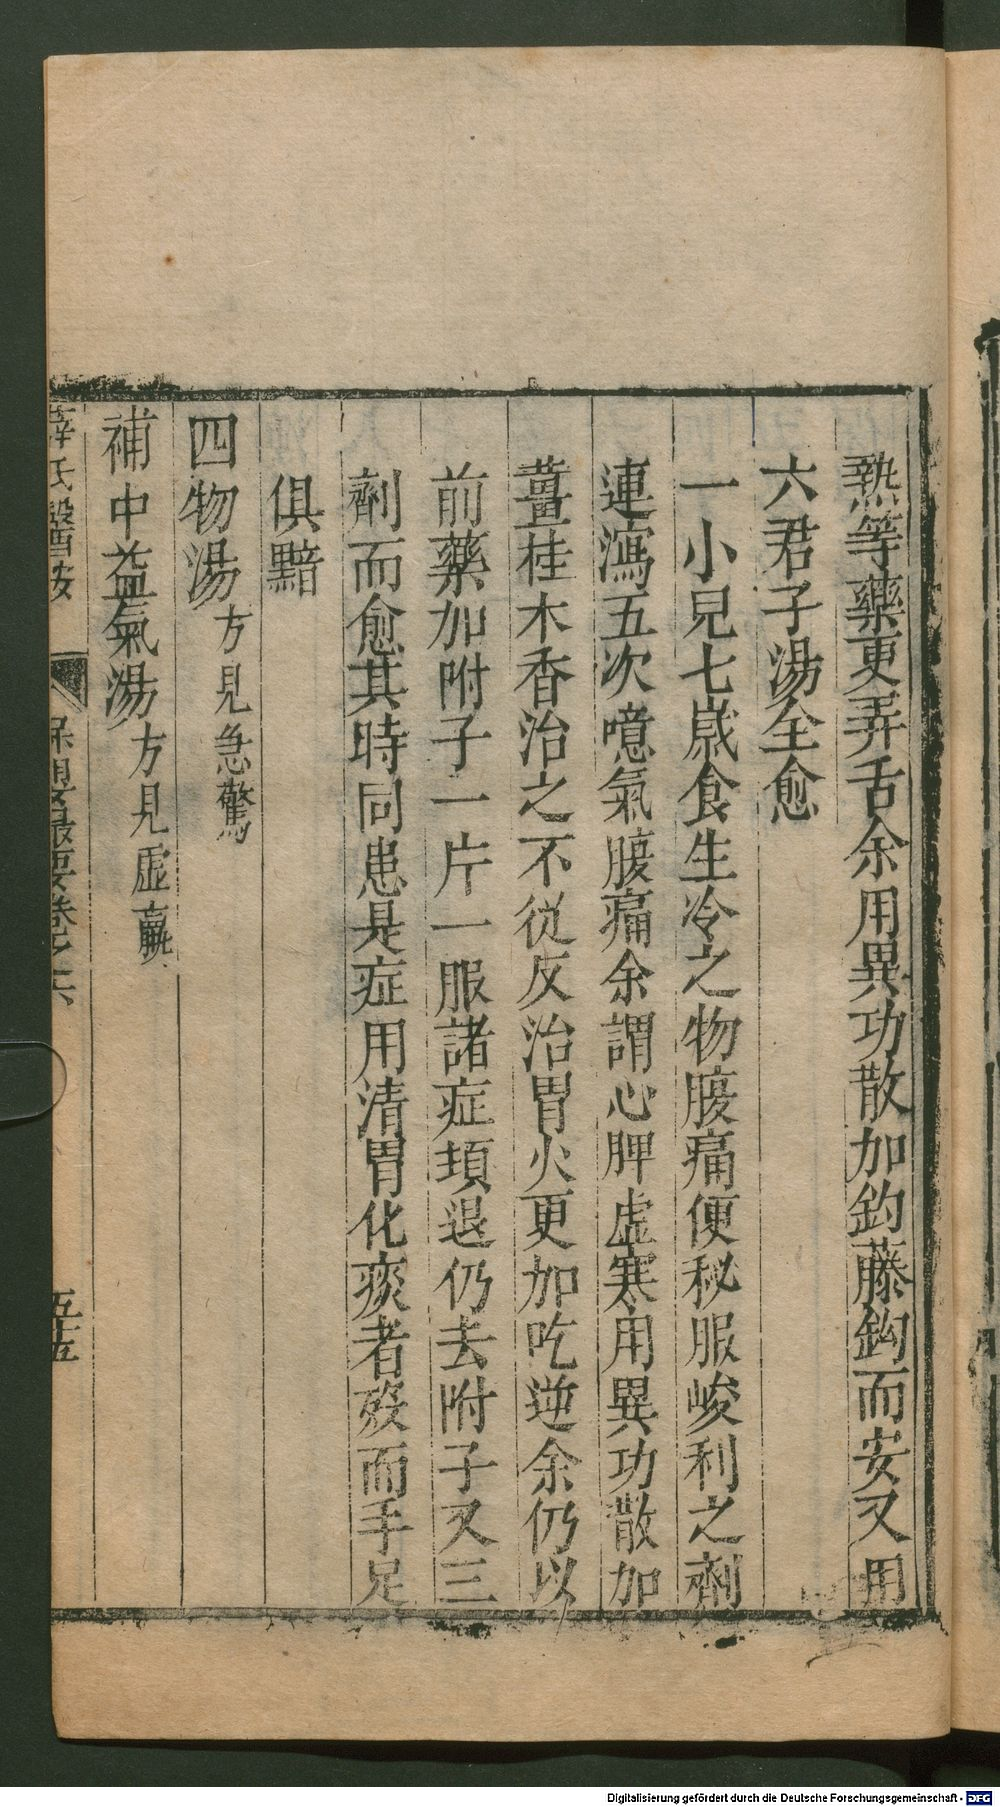 熱等藥更弄舌余用異功散加鈎藤鈎而安又用
六君子湯全愈
一小兒七歲食生冷之物腹痛便秘服峻利之劑
連瀉五次噫氣腹痛余謂心脾虛寒用異功散加
薑桂木香治之不從反治胃火更加吃逆余仍以
前藥加附子一片一服諸症頓退仍去附子又三
劑而愈其時同患是症用清胃化痰者歿而手足
俱黯
四物湯方見急驚
補中益氣湯方見虛羸
薛氏醫按 保嬰最要卷之六 五十五
Digitalisierung gefördert durch die Deutsche Forschungsgemeinschaft - DFG